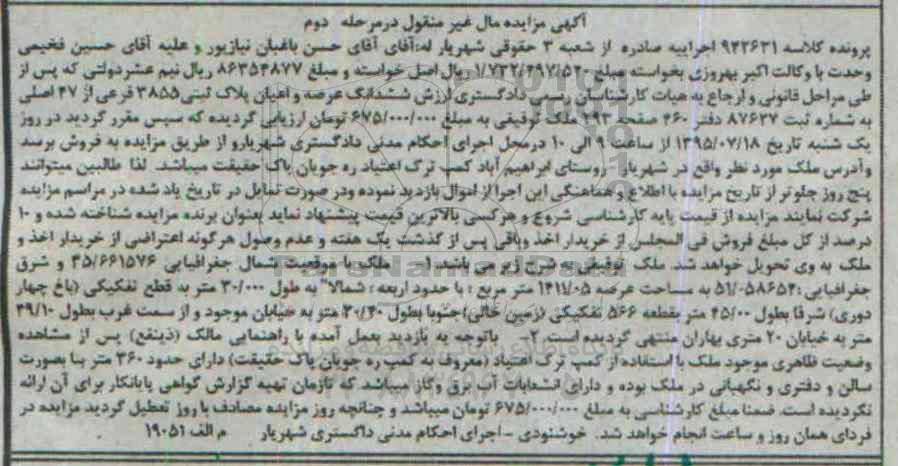 آگهی مزایده مال غیر منقول درمرحله دوم
پرونده کلاسه ۹۴۲۶۳۱ اجراییه صادره از شعبه ۳ حقوقی شهریار له:آقای آقای حسن باغبان نیازپور و علیه آقای حسین فخیمی
وحدت با وکالت اکبر بهروزی بخواسته مبلغ ریال اصل خواسته و مبلغ ۸۶۳۵۴۸۷۷ ریال نیم عشردولتی که پس از
طی مراحل قانونی و ارجاع به هیات کارشناسان رسمی دادگستری ارزش ششدانگ عرصه و اعیان پلاک ثبتی ۳۸۵۵ فرعی از ۴۷ اصلی
به شماره ثبت ۸۷۶۳۷ دفتر ۴۶۰ صفحه ۲۹۳ ملک توقیفی به مبلغ ۶۷۵/۰۰۰/۰۰۰ تومان ارزیابی گردیده که سپس مقرر گردید در روز
یک شنبه تاریخ ۱۳۹۵/۰۷/۱۸ از ساعت ۹ الی ۱۰ درمحل اجرای احکام مدنی دادگستری شهریارو از طریق مزایده به فروش برسد
وآدرس ملک مورد نظر واقع در شهریار - روستای ابراهیم آباد کمپ ترک اعتیاد ره جویان پاک حقیقت میباشد. لذا طالبین میتوانند
پنج روز جلوتر از تاریخ مزایده با اطلاع و هماهنگی این اجرا از اموال بازدید نموده ودر صورت تمایل در تاریخ یاد شده در مراسم مزایده
شرکت نمایند مزایده از قیمت پایه کارشناسی شروع و هرکسی بالاترین قیمت پیشنهاد نماید بعنوان برنده مزایده شناخته شده و ۱۰
درصد از کل مبلغ فروش فی المجلس از خریدار اخذ وباقی پس از گذشت یک هفته و عدم وصول هرگونه اعتراضی از خریدار اخذ و
ملک به وی تحویل خواهد شد. ملک توقیفی به شرح زیر می باشد. ۱- ملک با موقعیت شمال جغرافیایی ۳۵/۶۶۱۵۷۶ و شرق
جغرافیایی:۵۱/۰۵۸۶۵۴ به مساحت عرصه ۱۴۱۱/۰۵ متر مربع ؛ با حدود اربعه ؛ شمالا" به طول ۳۰/۰۰۰ متر به قطع تفکیکی (باغ چهار
دوری) شرقا بطول ۴۵/۰۰ متر بقطعه ۵۶۶ تفکیکی (زمین خالی)جنوبا بطول ۳۰/۳۰ متر به خیابان موجود و از سمت غرب بطول ۴۹/۱۰
متر به خیابان ۲۰ متری بهاران منتهی گردیده است. ۲- باتوجه به بازدید بعمل آمده با راهنمایی مالک (ذینفع) پس از مشاهده
وضعیت ظاهری موجود ملک با استفاده از کمپ ترک اعتیاد (معروف به کمپ ره جویان پاک حقیقت) دارای حدود ۳۶۰ متر بنا بصورت
سالن و دفتری و نگهبانی در ملک بوده و دارای انشعابات آب برق وگاز میباشد که تازمان تهیه گزارش گواهی پایانکار برای آن ارائه
نگردیده است. ضمنا مبلغ کارشناسی به مبلغ ۶۷۵/۰۰۰/۰۰۰ تومان میباشد و چنانچه روز مزایده مصادف با روز تعطیل گردید مزایده در
فردای همان روز و ساعت انجام خواهد شد. خوشنودی - اجرای احکام مدنی داگستری شهریار م الف ۱۹۰۵۱